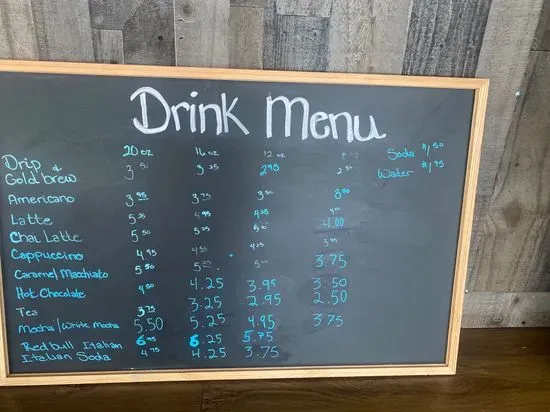 Drink Menu
20 oz 16 oz 12 oz 8 oz
Soda $1,50
Water $1,95
Drip &
Cold brew 3 50 3 25 2 95 2 50
Americano 3 95 3 75 3 50 3 00
Latte 5 25 4 95 4 25
Chai Latte 5 50 5 25 5 00 4.00
Cappuccino 4.95 4 50 4 25 3 75
Caramel Macchiato 5 50 5 25 5 00 3.75
Hot Chocolate 4 50 4.25 3.95 3.50
Tea 3 75 3.25 2.95 2.50
Mocha/White Mocha 5.50 5.25 4.95 3.75
Redbull Italian 6 95 6.25 5.75
Italian Soda 4 75 4.25 3.75